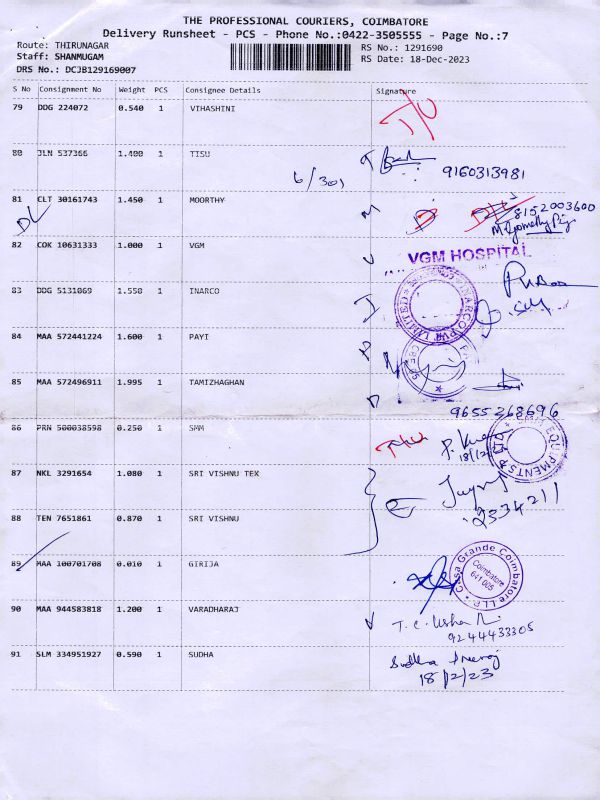 THE PROFESSIONAL COURIERS, COIMBATORE
Delivery Runsheet - PCS - Phone No.:0422-3505555 - Page No.:7
Route: THIRUNAGAR RS No.: 1291690
Staff: SHANMUGAM RS Date: 18-Dec-2023
DRS No.: DCJB129169007
S No Consignment No Weight PCS Consignee Details Signature
79 DDG 224072 0.540 1 VIHASHINI
80 JLN 537366 1.400 1 TISU
6/301 9160313981
81 CLT 30161743 1.450 1 MOORTHY M 8152003600
DL
82 COK 10631333 1.000 1 VGM V
VGM HOSPITAL
83 DDG 5131069 1.550 1 INARCO I
INARCO PVT LIMITED
84 MAA 572441224 1.600 1 PAYI P
85 MAA 572496911 1.995 1 TAMIZHAGHAN
9655268696
86 PRN 500038598 0.250 1 SMM
EQUIPMENTS P
18/12
87 NKL 3291654 1.080 1 SRI VISHNU TEX
88 TEN 7651861 0.870 1 SRI VISHNU
2334211
89 MAA 100701708 0.010 1 GIRIJA
Casa Grande Coimbatore LLP
Coimbatore
641 005
90 MAA 944583818 1.200 1 VARADHARAJ
T. C. Usha
9244433305
91 SLM 334951927 0.590 1 SUDHA Sudha
18/12/23